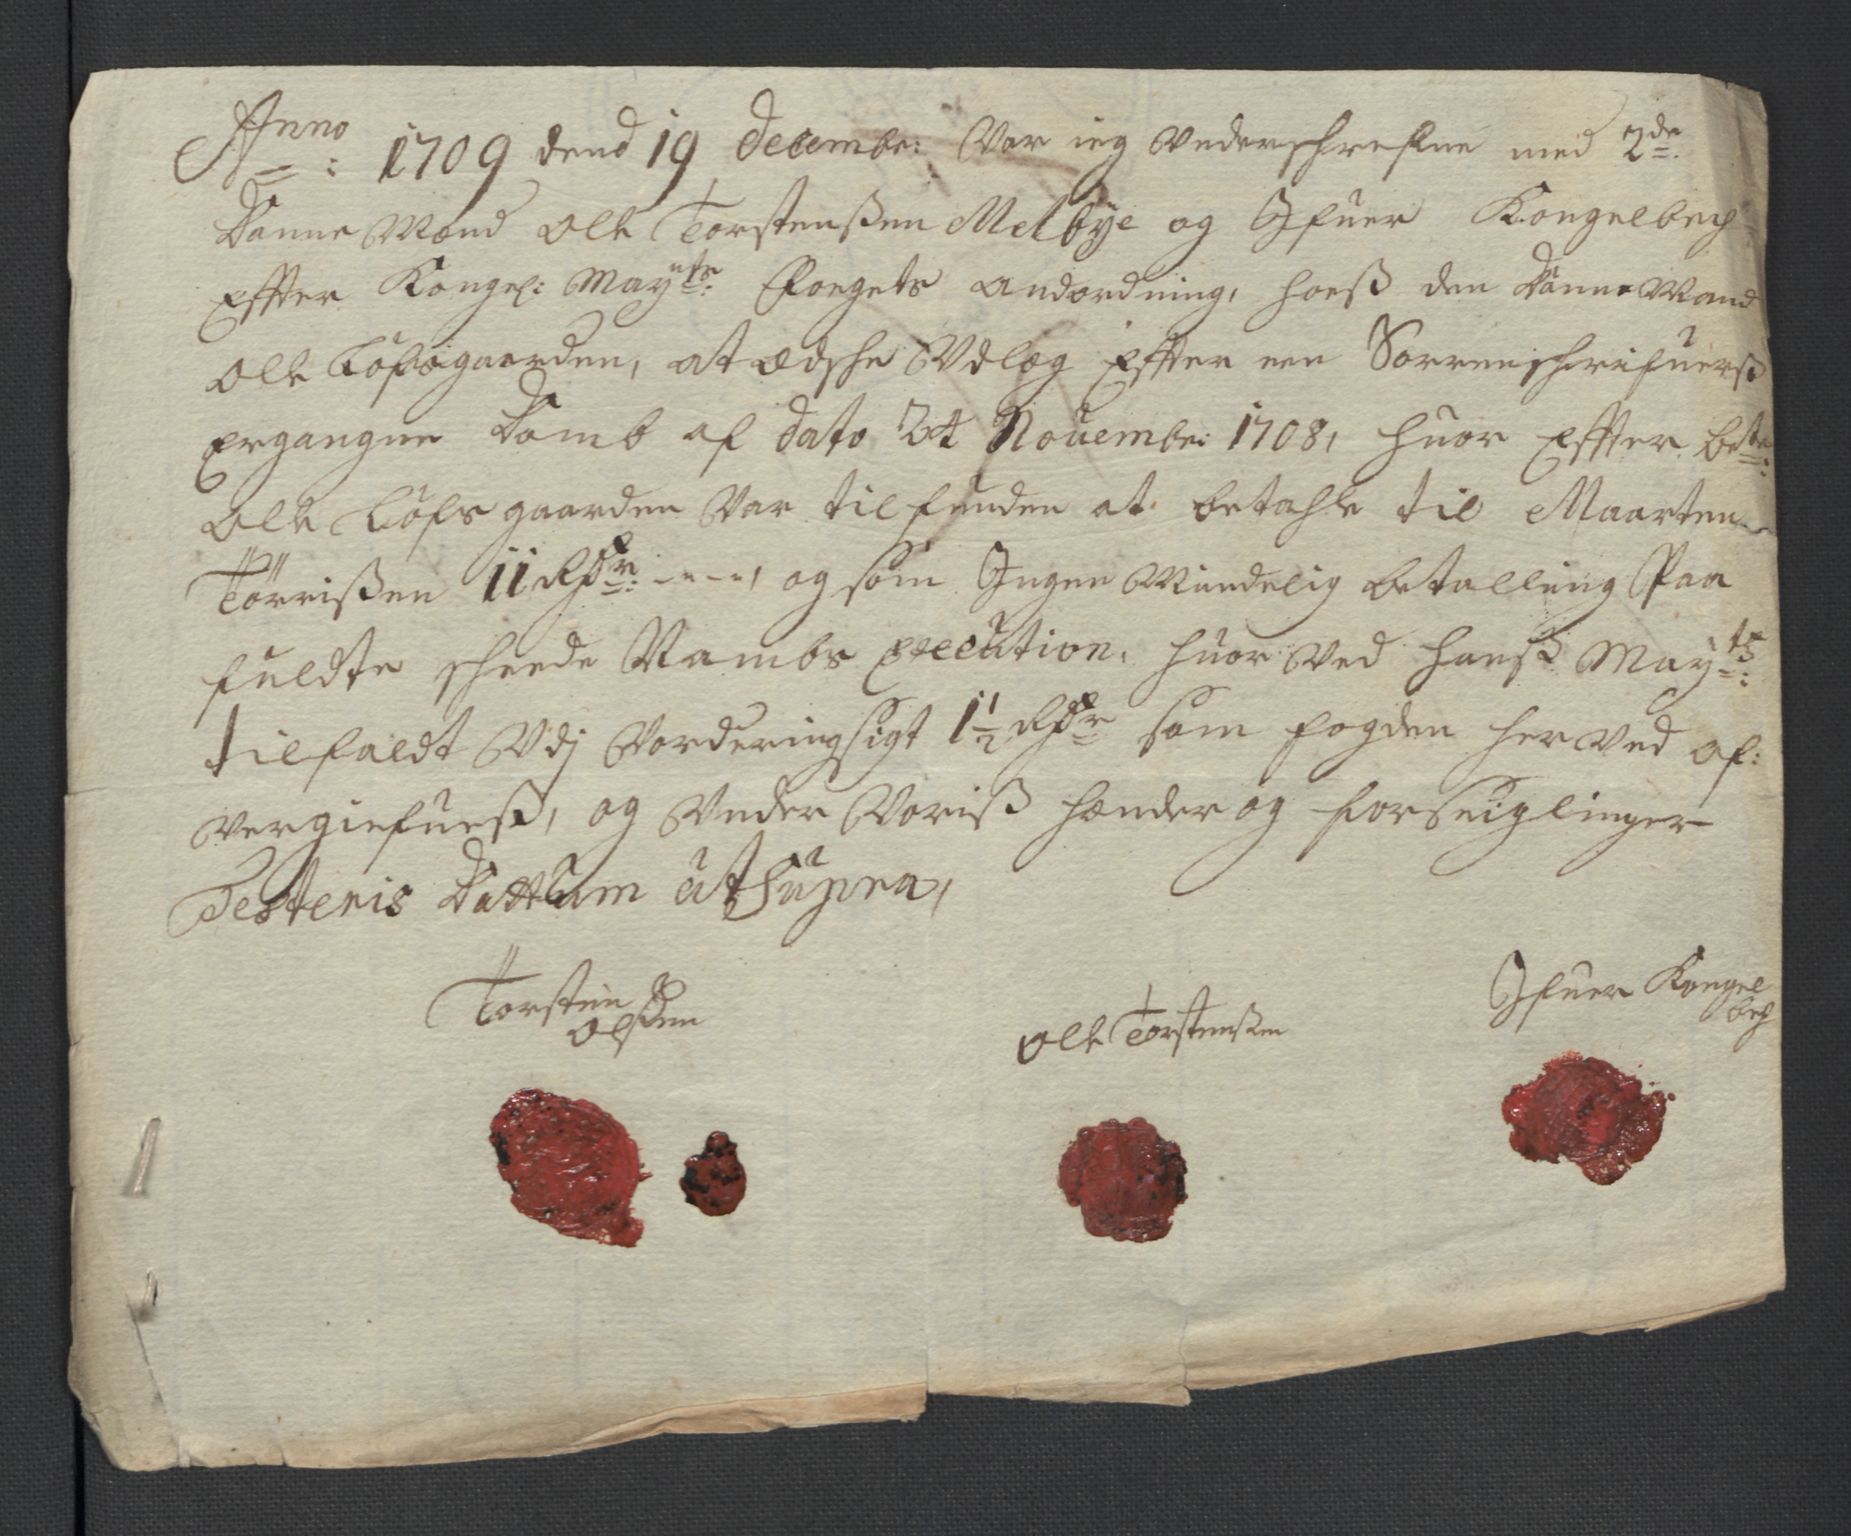 Anno: 1709 dend 19 Decembr: Var ieg Vnderschrefne med 2de
Danne Mænd Olle Torstenßen Melbye og Ifuer Kongelbech
Effter Kongel: Mayts: Fogets Andordning, hoeß den Danne Mand
Olle Löfsgaarden, at ædsche Vdlæg Effter een Sorrenschrifuerß
Ergangne Domb af Dato 24 Nouembr: 1708, huor Effter bete:
Olle Löfsgaarden Var tilfunden at betahle til Maarten
Törrißen 11 Rdr: - - -, og som Ingen Mindelig betalling Paa
fuldte scheede Nambs Execution, huor Ved hanß Mayts:
tilfaldt Vdj Vorderingsigt 1 1/2 Rdr som fogden her Ved af:
vergiefueß, og Vnder Voriß hænder og forseiglinger
Testeris Dattum ut Supra,
Torsten
Olßen
Olle Torstenßen
Ifuer Kongel
bech